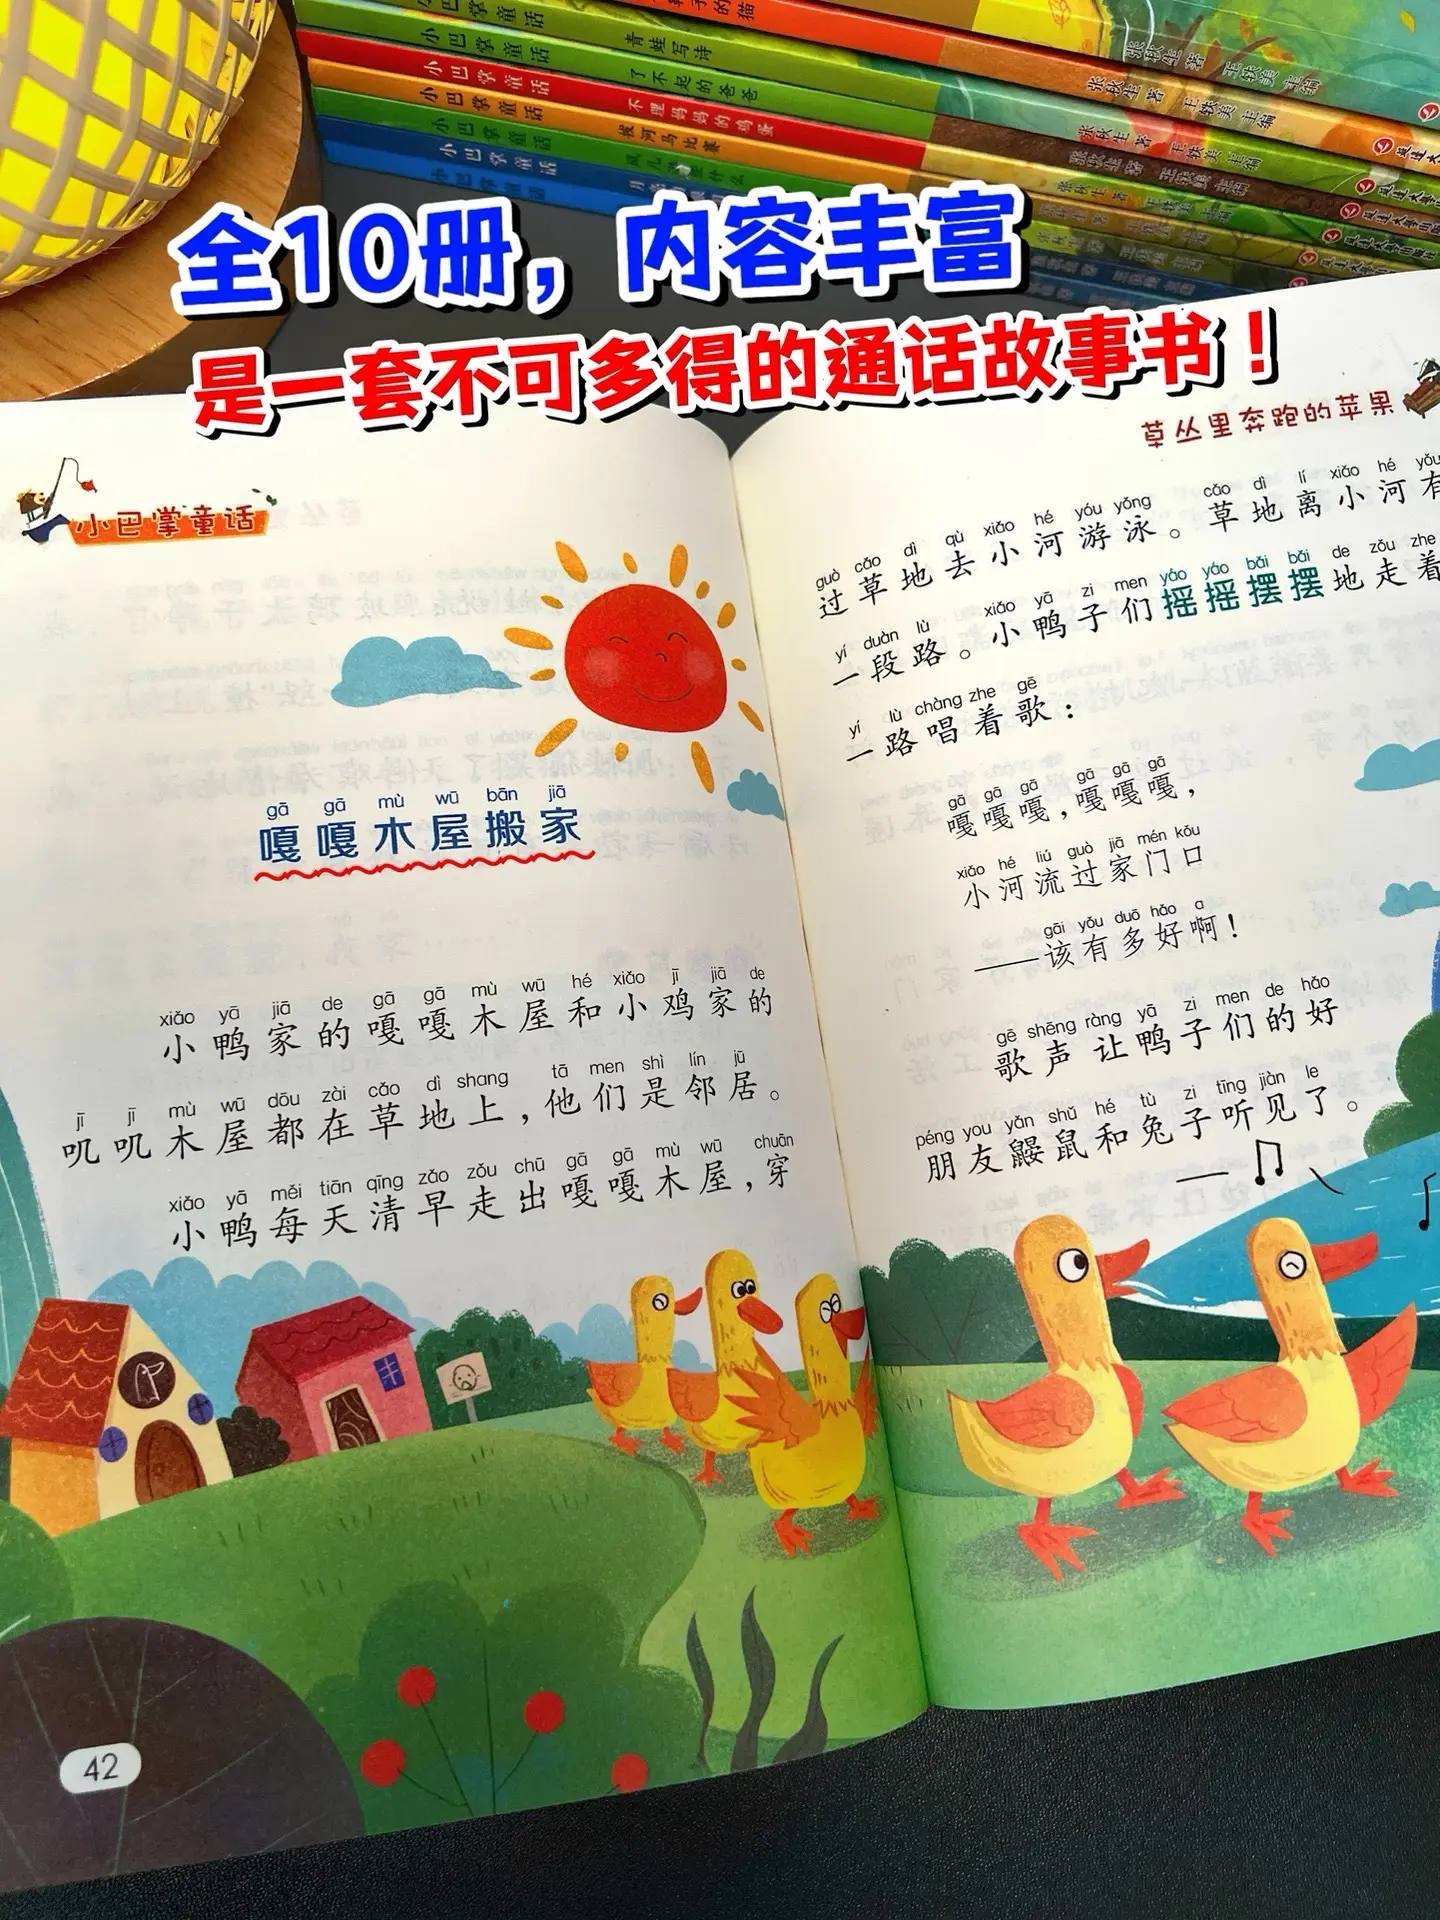 小巴掌童话
的猫
小巴掌童话 青蛙写诗
小巴掌童话 了不起的爸爸
小巴掌童话 不理妈妈的鸡蛋
小巴掌童话 拔河马比赛
小巴掌童话
张秋生 著 王铁美 主编
张秋生 著 王铁美 主编
张秋生 著 王铁美 主编
全10册，内容丰富
是一套不可多得的通话故事书！
小巴掌童话
gā gā mù wū bān jiā
嘎嘎木屋搬家
xiǎo yā jiā de gā gā mù wū hé xiǎo jī jiā de
小鸭家的嘎嘎木屋和小鸡家的
jī jī mù wū dōu zài cǎo dì shang tā men shì lín jū
叽叽木屋都在草地上，他们是邻居。
xiǎo yā měi tiān qīng zǎo zǒu chū gā gā mù wū chuān
小鸭每天清早走出嘎嘎木屋，穿
42
草丛里奔跑的苹果
guò cǎo dì qù xiǎo hé yóu yǒng cǎo dì lí xiǎo hé yǒu
过草地去小河游泳。草地离小河有
yí duàn lù xiǎo yā zi men yáo yáo bǎi bǎi de zǒu zhe
一段路。小鸭子们摇摇摆摆地走着
yí lù chàng zhe gē
一路唱着歌：
gā gā gā gā gā gā
嘎嘎嘎，嘎嘎嘎，
xiǎo hé liú guò jiā mén kǒu
小河流过家门口
gāi yǒu duō hǎo a
——该有多好啊！
gē shēng ràng yā zi men de hǎo
歌声让鸭子们的好
péng you yǎn shǔ hé tù zi tīng jiàn le
朋友鼹鼠和兔子听见了。